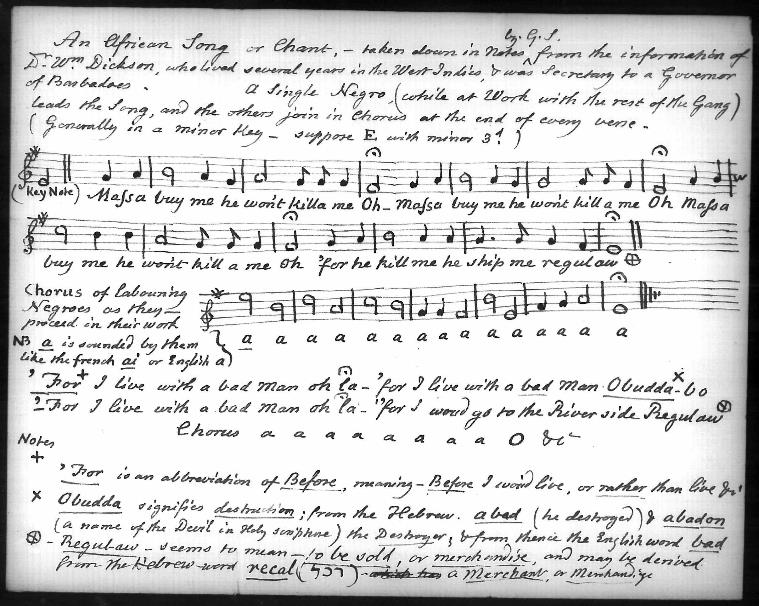 An African Song or Chant, – taken down in Notes by G.S. from the information of
Dr. Wm Dickson, who lived several years in the West Indies, & was Secretary to a Governor
of Barbadoes. A Single Negro, (while at Work with the rest of the Gang)
leads the Song, and the others join in Chorus at the end of every verse –
(Generally in a minor Key – suppose E with minor 3d.)
(Key Note) Massa buy me he won't killa me Oh – Massa buy me he won't kill a me Oh Massa
buy me he won't kill a me oh 'for he kill me he ship me regulaw ⊕
Chorus of labouring
Negroes as they –
proceed in their work
a a a a a a a a a a a a a
NB a is sounded by them
like the french ai or English a)
'For + I live with a bad man oh la – 'for I live with a bad man Obudda x – bo
'For I live with a bad man oh la – 'for I woud go to the River side Regulaw ⊗
Chorus a a a a a a a a O &c
Notes
+ 'For is an abbreviation of Before, meaning – Before I woud live, or rather than live &c
x Obudda signifies destruction; from the Hebrew. abad (he destroyed) & abadon
(a name of the Devil in Holy scripture) the Destroyer; & from thence the English word bad
⊗ – Regulaw – seems to mean – to be sold, or merchandise, and may be derived
from the Hebrew word recal (רכל) – a Merchant, or Merchandize